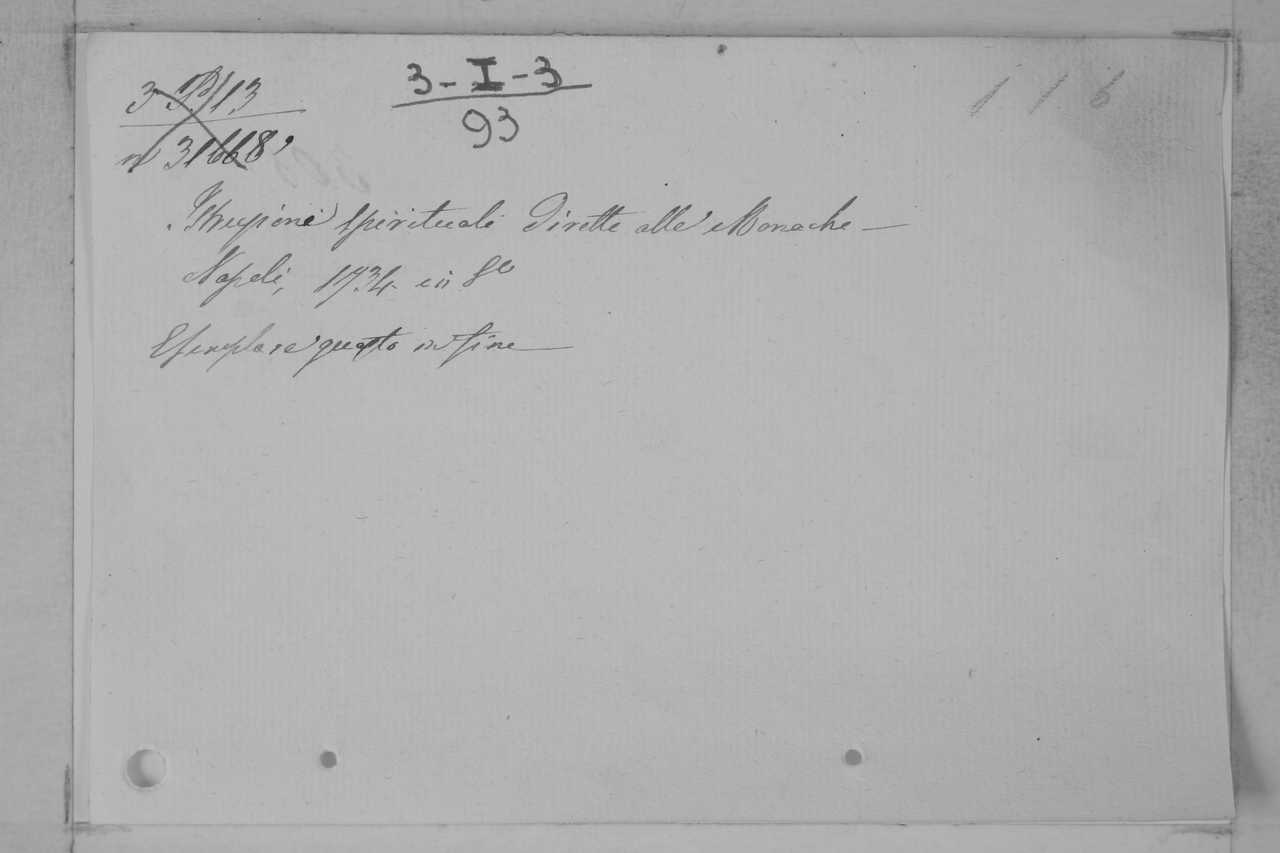 3-I-3
93
116
Istruzioni spirituali dirette alle Monache —
Napoli, 1734. in 8º
Esemplare guasto in fine —